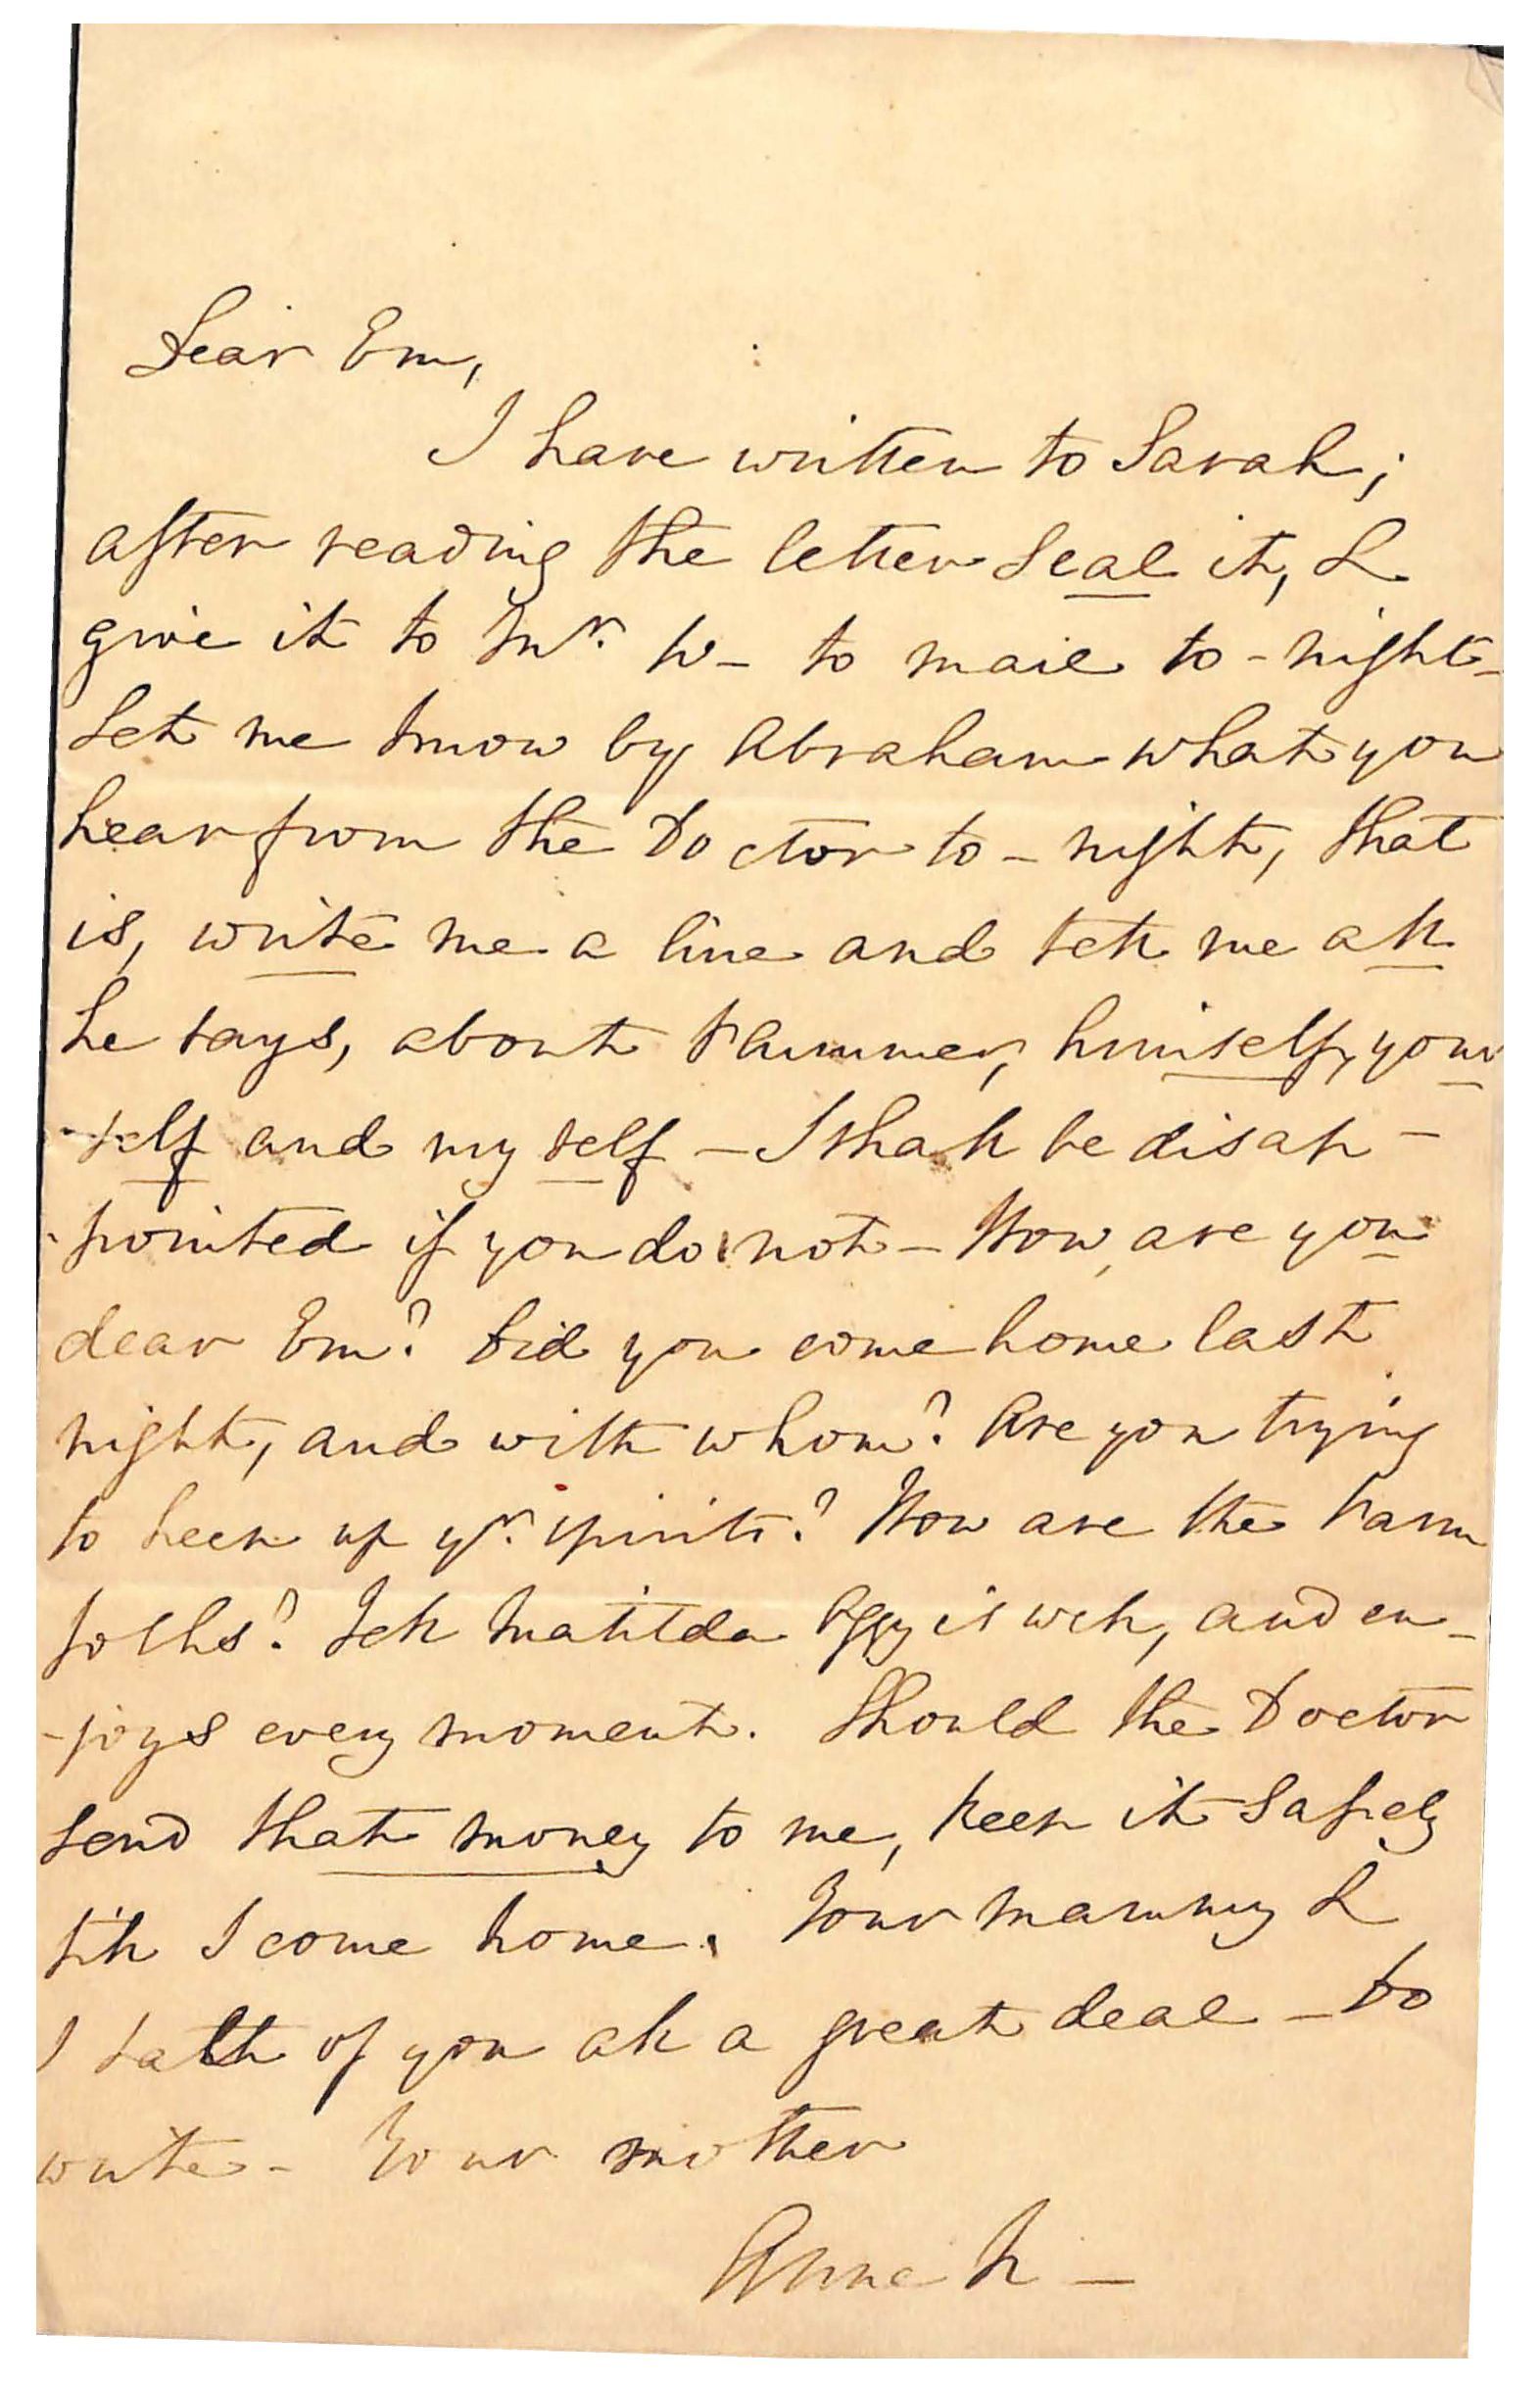 Dear Em,
I have written to Sarah;
after reading the letter seal it, &
give it to Mr. W– to mail to-night–
Let me know by Abraham what you
hear from the Doctor to-night, that
is, write me a line and tell me all
he says, about himself, your
-self and myself – I shall be disap-
-pointed if you do not – How are you
dear Em? Did you come home last
night, and with whom? Are you trying
to keep up yr. spirits? How are the Farm
folks? Tell Matilda Aggy is well, and en-
-joys every moment. Should the Doctor
send that money to me, keep it safely
till I come home. Your mammy &
I talk of you all a great deal – Do
write – Your mother
Anna